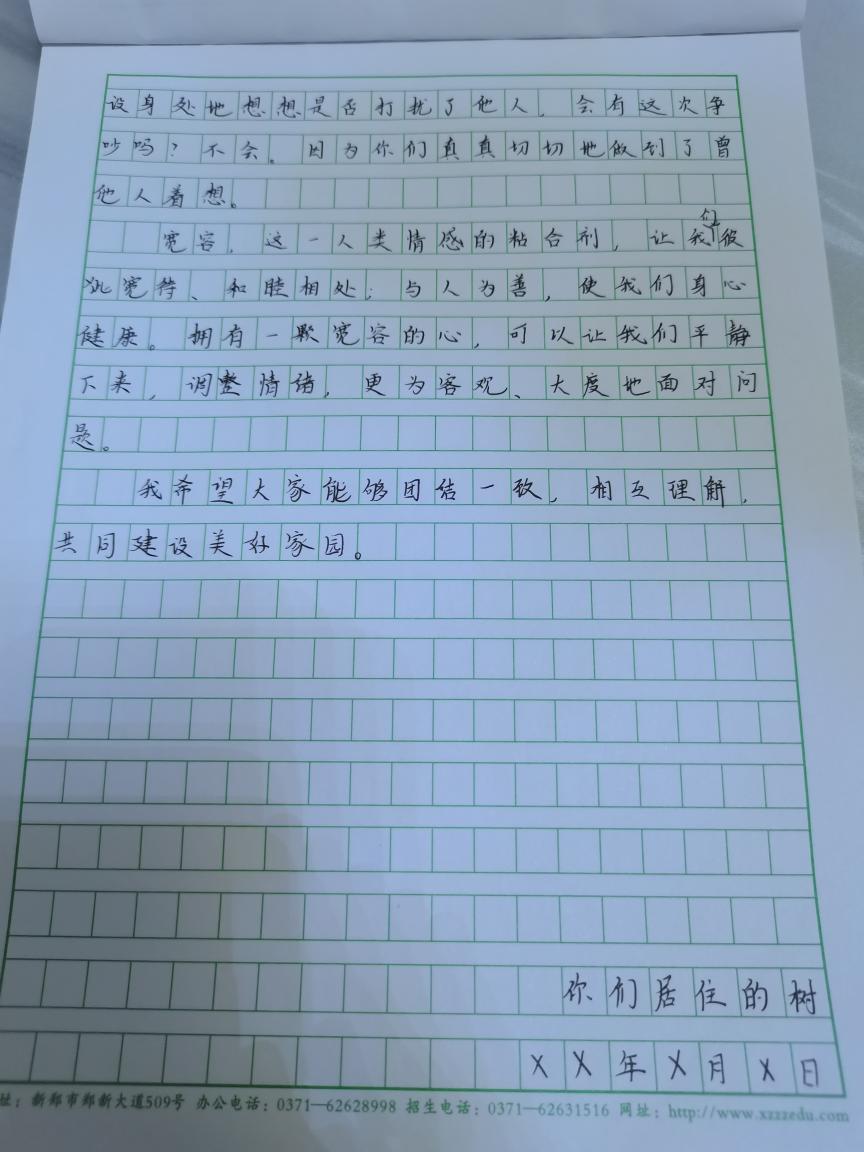 设身处地想想是否打扰了他人，会有这次争
吵吗？不会。因为你们真真切切地做到了曾
他人着想。
宽容，这一人类情感的粘合剂，让我们彼
此宽待、和睦相处；与人为善，使我们身心
健康。拥有一颗宽容的心，可以让我们平静
下来，调整情绪，更为客观、大度地面对问
题。
我希望大家能够团结一致，相互理解，
共同建设美好家园。
你们居住的树
X X 年 X 月 X 日
址：新郑市郑新大道509号 办公电话：0371—62628998 招生电话：0371—62631516 网址：http://www.xzzzedu.com